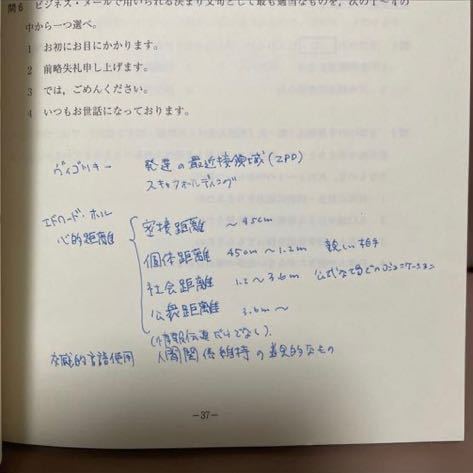 問6 ビジネス・メールで用いられる決まり文句として最も適当なものを，次の1～4の
中から一つ選べ。
1 お初にお目にかかります。
2 前略失礼申し上げます。
3 では，ごめんください。
4 いつもお世話になっております。
ヴィゴツキー 発達の最近接領域(ZPD)
スキャフォールディング
エドワード・ホール
心的距離
密接距離 ～45cm
個体距離 45cm～1.2m 親しい相手
社会距離 1.2～3.6m 公式な場でのコミュニケーション
公衆距離 3.6m～
(情報伝達だけでなく)
交感的言語使用 人間関係維持の 的なもの
－37－